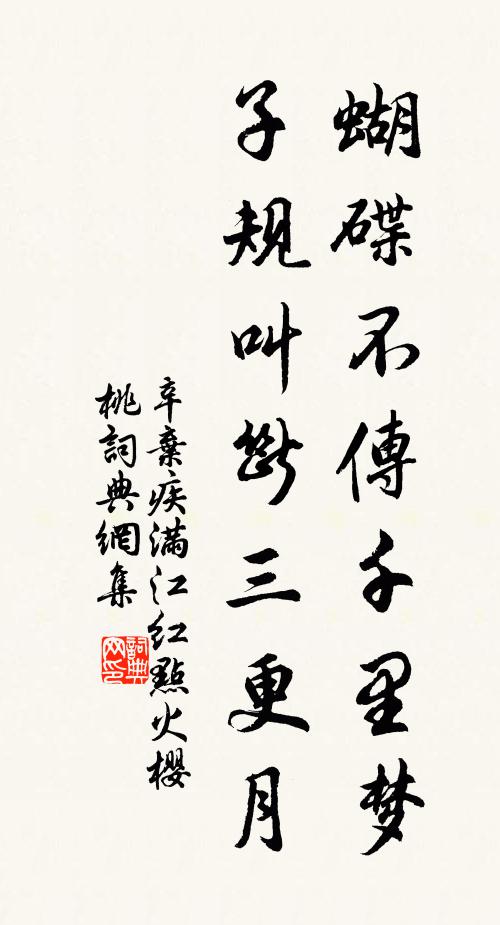 蝴蝶不傳千里梦
子規叫斷三更月
辛棄疾滿江紅點火櫻
桃詞典網集
詞典
网印